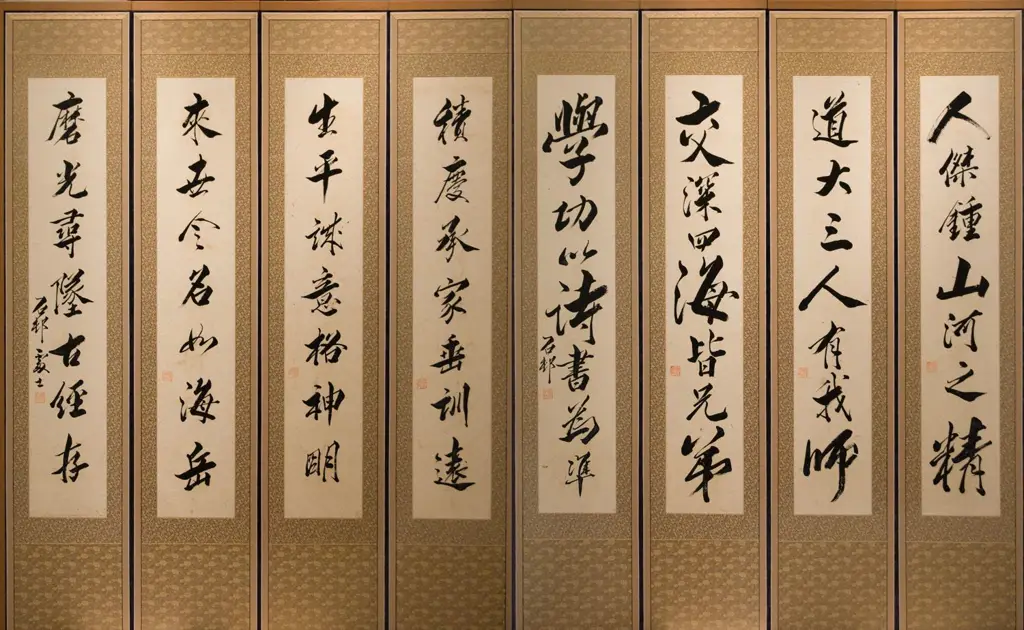 人傑鍾山河之精
道大三人有我師
交深四海皆兄弟
學功以詩書為準
石邨
積慶承家垂訓遠
生平誠意格神明
來世令名如海岳
磨光尋墜古經存
石邨